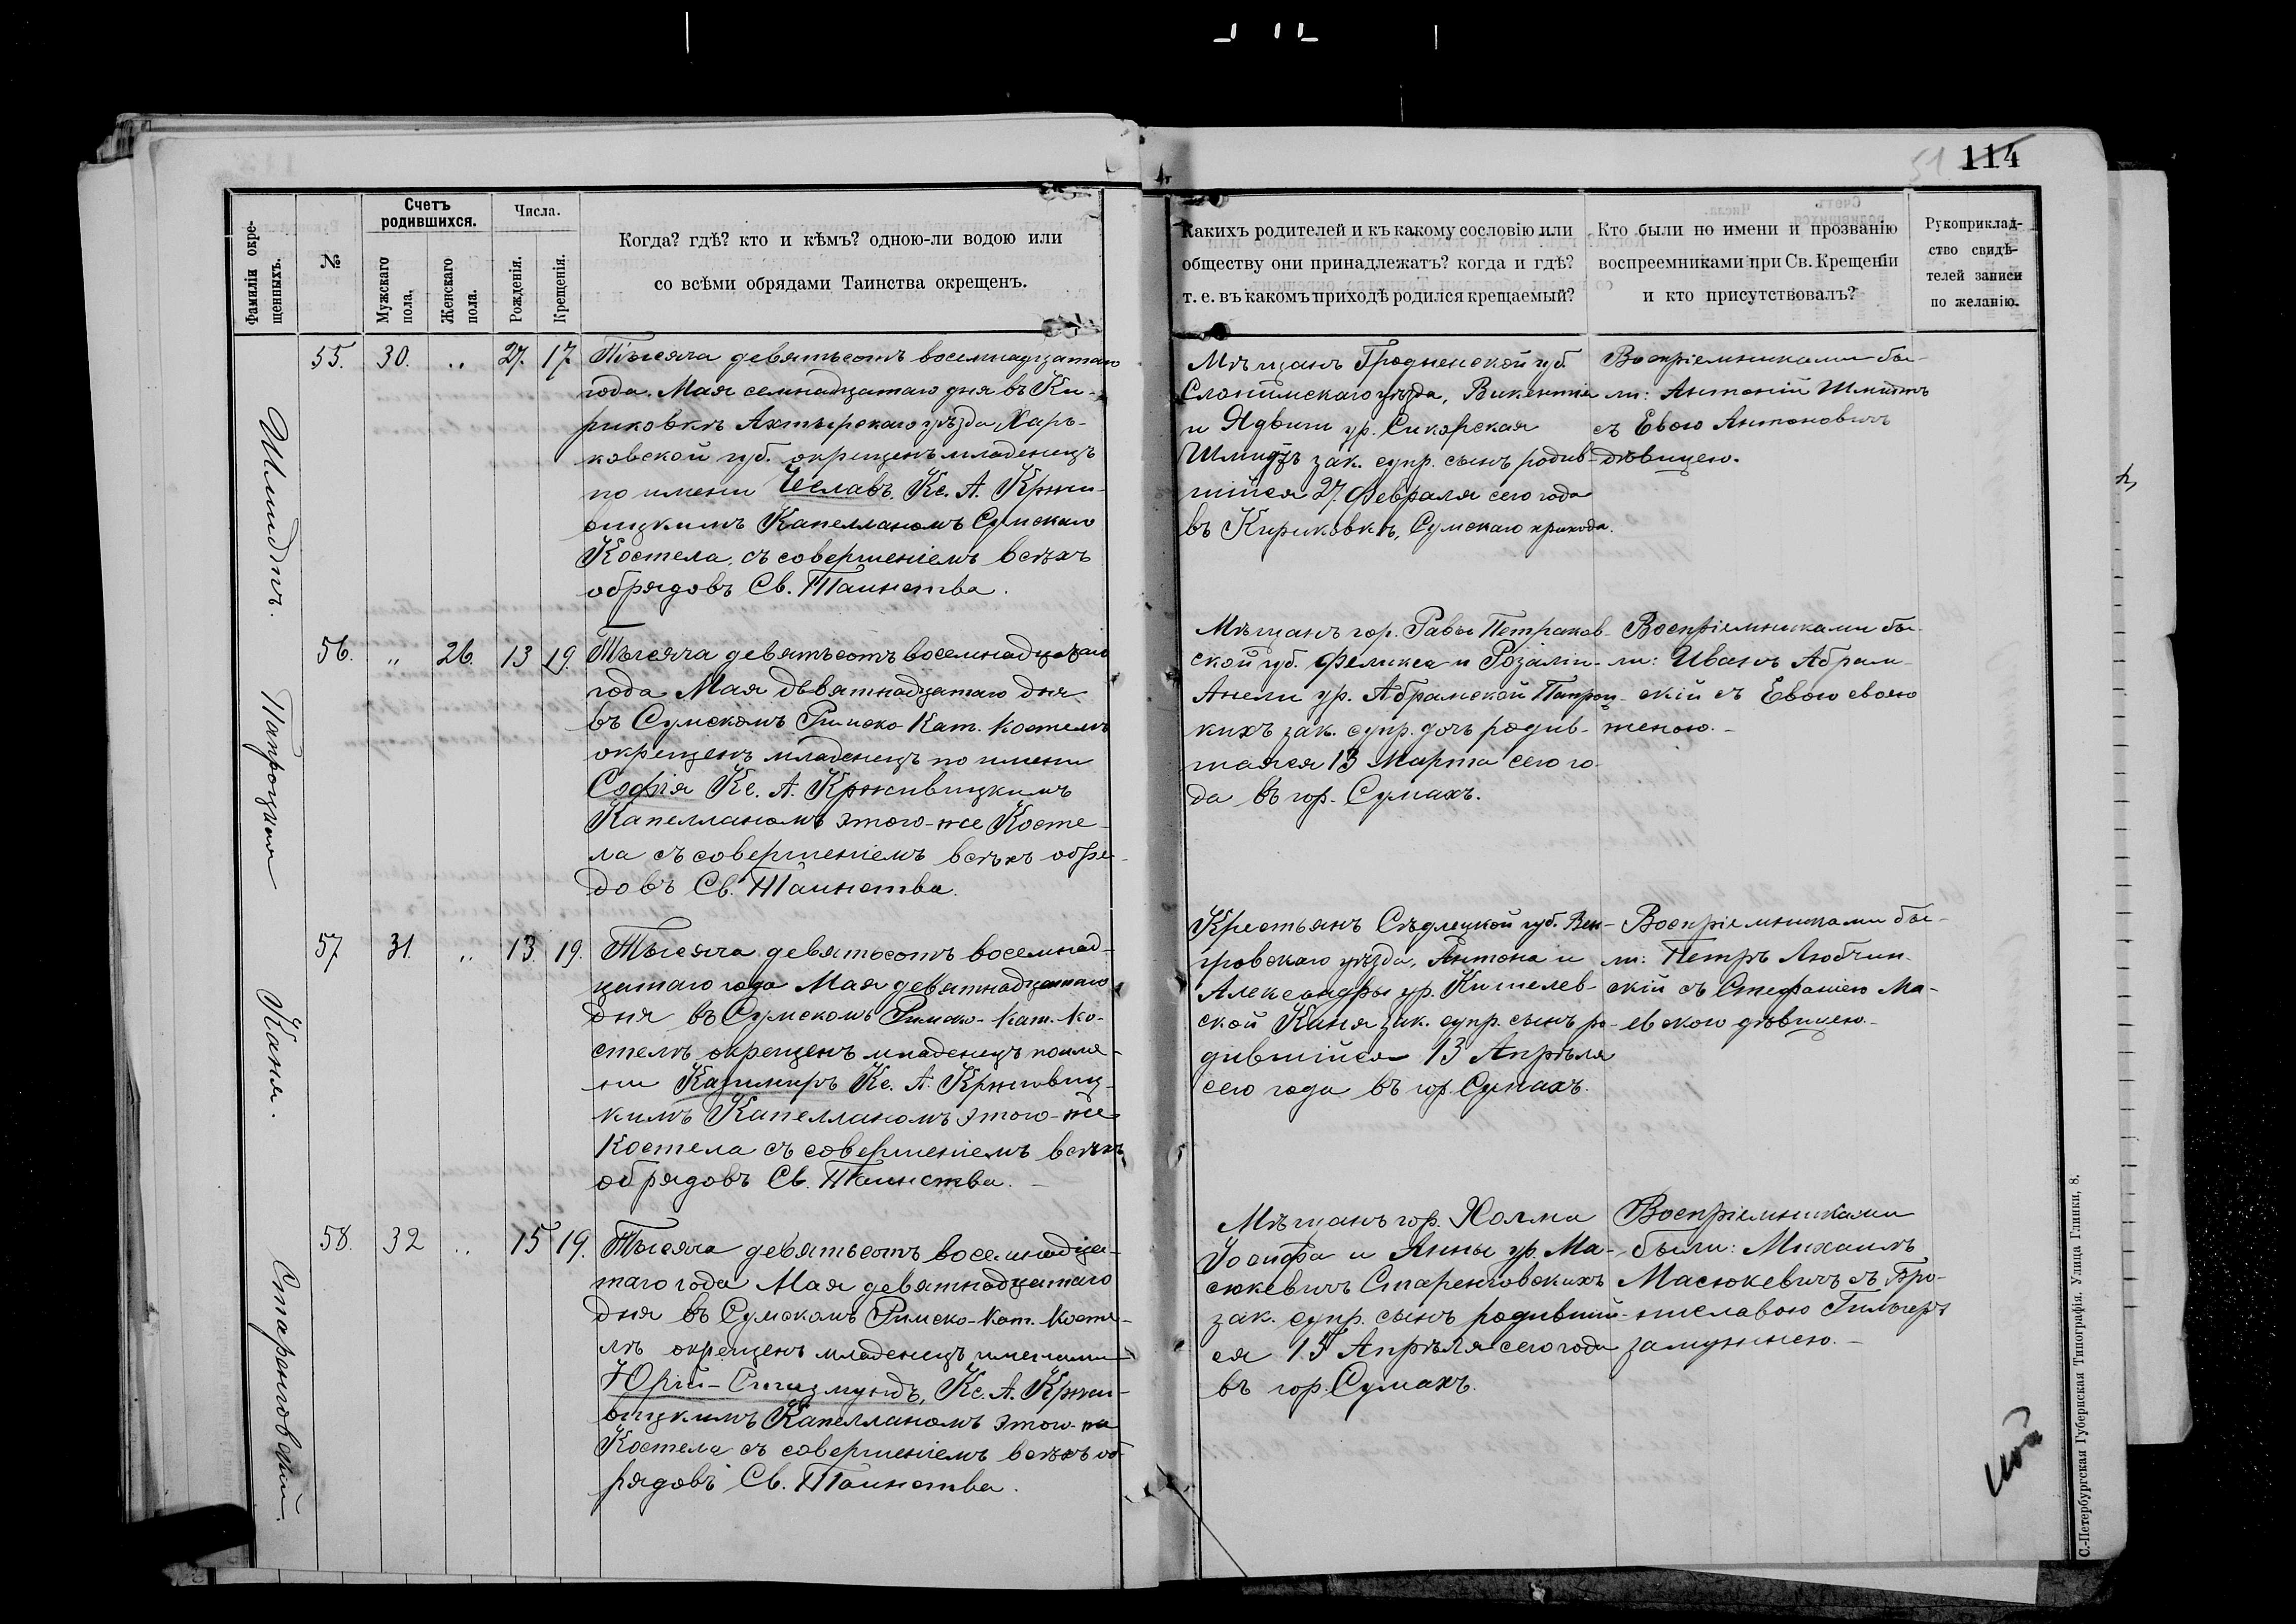 51 114
Фамиліи окре-
щенныхъ.
№
Счетъ
родившихся.
Мужскаго
пола.
Женскаго
пола.
Числа.
Рожденія.
Крещенія.
Когда? гдѣ? кто и кѣмъ? одною-ли водою или
со всѣми обрядами Таинства окрещенъ.
Какихъ родителей и къ какому сословію или
обществу они принадлежатъ? когда и гдѣ?
т. е. въ какомъ приходѣ родился крещаемый?
Кто были по имени и прозванію
воспреемниками при Св. Крещеніи
и кто присутствовалъ?
Рукоприклад-
ство свидѣ-
телей записи
по желанію.
Шмидтъ.
55. 30. „ 27. 17.
Тысяча девятьсотъ восемнадцатаго
года. Мая семнадцатаго дня въ Ки-
риковкѣ Ахтырскаго уѣзда, Харь-
ковской губ. окрещенъ младенецъ
по имени Чеславъ Кс. А. Кржи-
вицкимъ Капелланомъ Сумскаго
Костела, съ совершеніемъ всѣхъ
обрядовъ Св. Таинства.
Мѣщанъ Гродненской губ.
Слонимскаго уѣзда, Викентія
и Ядвиги ур. Сикорская
Шмидтъ зак. супр. сынъ родив-
шійся 27. Февраля сего года
въ Кириковкѣ, Сумскаго прихода.
Воспріемниками бы-
ли: Антоній Шмидтъ
съ Евою Антоновичъ
дѣвицею.
Папроцкая
56. „ 26. 13 19.
Тысяча девятьсотъ восемнадцатаго
года Мая девятнадцатаго дня
въ Сумскомъ Римско-Кат. Костелѣ
окрещенъ младенецъ по имени
Софія Кс. А. Крживицкимъ
Капелланомъ этого-же Косте-
ла съ совершеніемъ всѣхъ обря-
довъ Св. Таинства.
Мѣщанъ гор. Равы Петраков-
ской губ. Феликса и Розаліи-
Анели ур. Абрамской Папроц-
кихъ зак. супр. дочь родив-
шаяся 13 Марта сего го-
да въ гор. Сумахъ.
Воспріемниками бы-
ли: Иванъ Абрам-
скій съ Евою своею
женою.-
Каня.
57 31. „ 13. 19.
Тысяча девятьсотъ восемнад-
цатаго года Мая девятнадцатаго
дня въ Сумскомъ Римско-Кат. Ко-
стелѣ окрещенъ младенецъ по име-
ни Казимиръ Кс. А. Крживиц-
кимъ Капелланомъ этого-же
Костела съ совершеніемъ всѣхъ
обрядовъ Св. Таинства.-
Крестьянъ Сѣдлецкой губ. Вен-
гровскаго уѣзда, Антона и
Александры ур. Кишелев-
ской Каня зак. супр. сынъ ро-
дившійся 13 Апрѣля
сего года въ гор. Сумахъ.
Воспріемниками бы-
ли: Петръ Любчин-
скій съ Стефаніею Ма-
евскою дѣвицею.-
Старенговскій.
58. 32 „ 15 19.
Тысяча девятьсотъ восемнадца-
таго года Мая девятнадцатаго
дня въ Сумскомъ Римско-Кат. Косте-
лѣ окрещенъ младенецъ именами
Юрій-Сигизмундъ, Кс. А. Кржи-
вицкимъ Капелланомъ этого-же
Костела съ совершеніемъ всѣхъ об-
рядовъ Св. Таинства.
Мѣщанъ гор. Холма
Іосифа и Анны ур. Ма-
сюкевичъ Старенговскихъ
зак. супр. сынъ родивший-
ся 15 Апрѣля сего года
въ гор. Сумахъ.
Воспріемниками
были: Михаилъ
Масюкевичъ съ Бро-
ниславою Гильгеръ
замужнею.-
С.-Петербургская Губернская Типографія. Улица Глинки, 8.